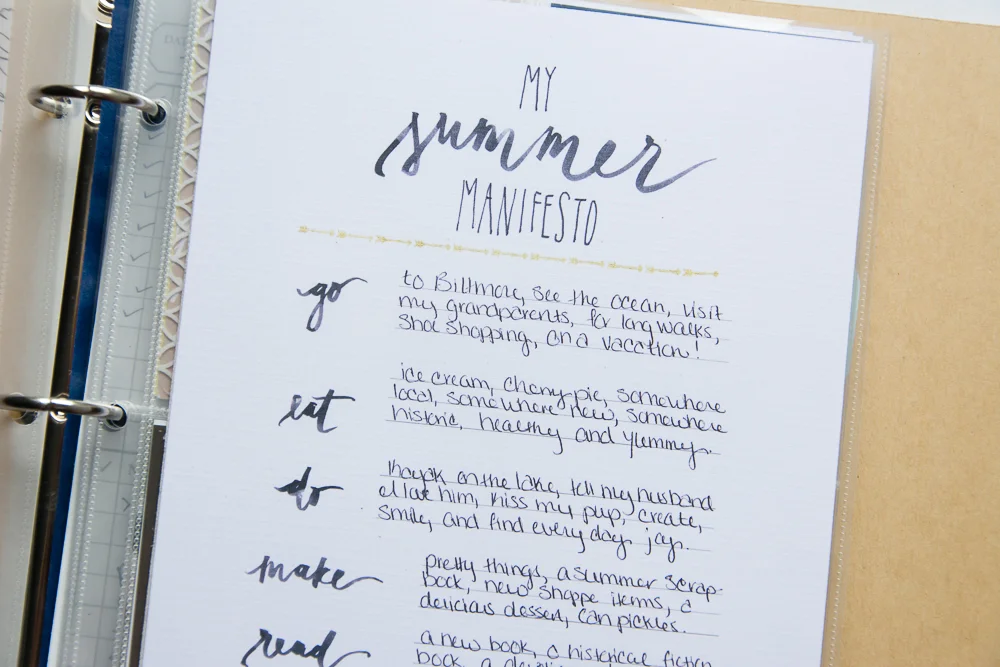 MY
summer
MANIFESTO
go
to Biltmore, see the ocean, visit
my grandparents, for long walks,
shoe shopping, on a vacation!
eat
ice cream, cherry pie, somewhere
local, somewhere new, somewhere
historic, healthy and yummy.
do
on the lake, tell my husband
him, kiss my pup, create,
smile, and find every day joy.
make
pretty things, a summer scrap-
book, new shoppe items, a
delicious dessert, can pickles.
read
a new book, a historical fiction
book, a